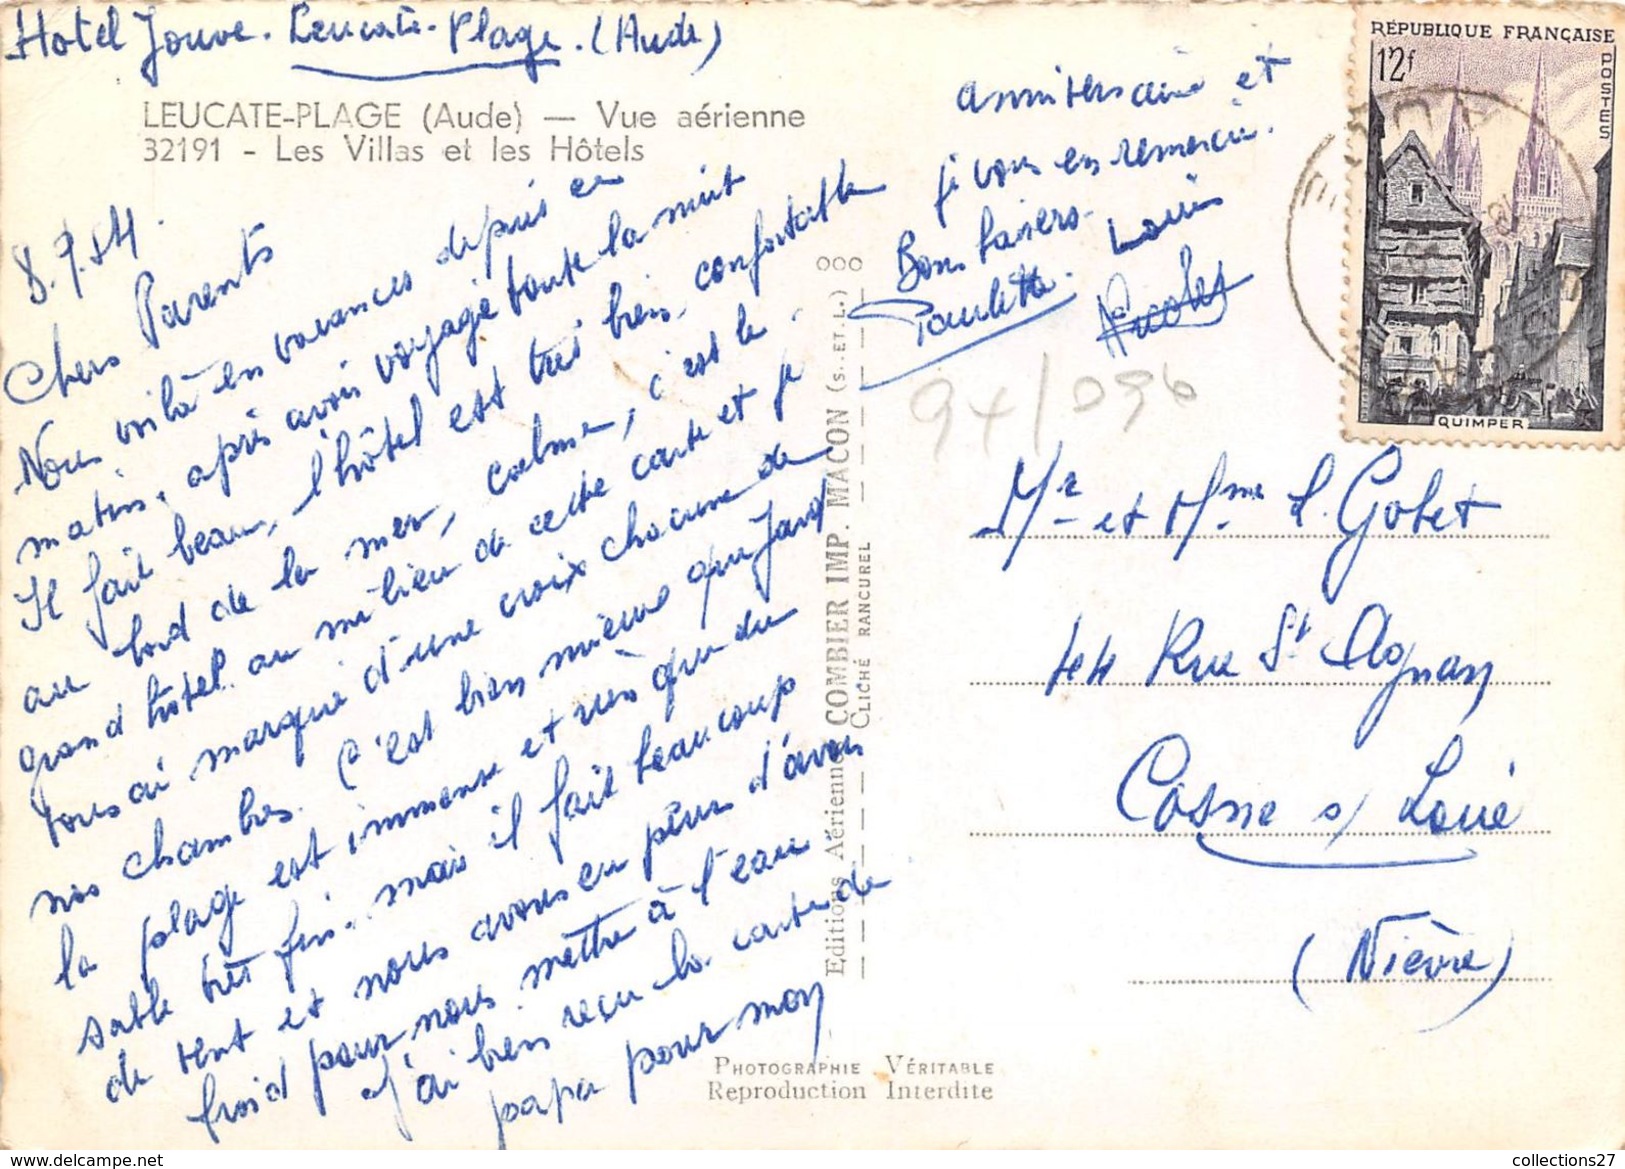 Hotel Jouve. Leucate-Plage. (Aude)
LEUCATE-PLAGE (Aude) — Vue aérienne
32191 - Les Villas et les Hôtels
8.7.54.
Chers Parents
Nous voilà en vacances depuis ce
matin, après avoir voyagé toute la nuit
Il fait beau, l'hôtel est très bien, confortable
au bord de la mer, calme, c'est le
grand hôtel au milieu de cette carte et je
vous ai marqué d'une croix chacune de
nos chambres. C'est bien mieux que
la plage est immense et rien que du
sable très fin, mais il fait beaucoup
de vent et nous avons eu peur d'avoir
froid pour nous mettre à l'eau
J'ai bien reçu la carte de
papa pour mon
anniversaire et
je vous en remercie.
Bons baisers.
Paulette. Louis
RÉPUBLIQUE FRANÇAISE
12f
POSTES
QUIMPER
94/096
Mr et Mme L. Gobet
44 Rue St Agnan
Cosne s/ Loire
(Nièvre)
Editions Aériennes COMBIER IMP. MACON (S. ET L.)
CLICHÉ RANCUREL
PHOTOGRAPHIE VÉRITABLE
Reproduction Interdite
collections27